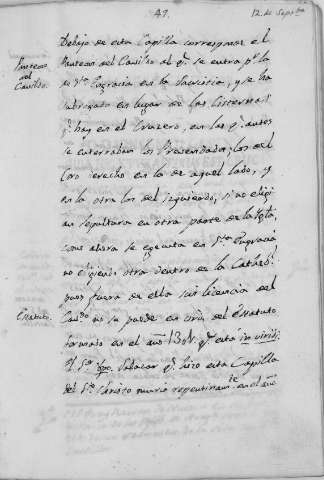 47.
12. de Sept.bre
Debajo de esta Capilla corresponde el
Panteon del Cavildo
Panteon del Cavildo al q.e se entra p.r la
de S.ta Engracia en la Sacristia, y se ha
subrogado en lugar de las Cisternas
q.e hay en el Cruzero, en las q.e antes
se enterraban los Prebendados, los del
Coro derecho en la de aquel lado, y
en la otra los del izquierdo, si no eligi
an sepultura en otra parte de la Igl.a
como ahora se egecuta en S.ta Engracia
no eligiendo otra dentro de la Cathed.l
pues fuera de ella sin licencia del
Estatuto.
Cav.do no se puede en vir.d del Estatuto
formado en el año q.e esta in viridi.
El S.or Obpo. q.e hizo esta Capilla
del S.to Christo murió repentinam.te en el año